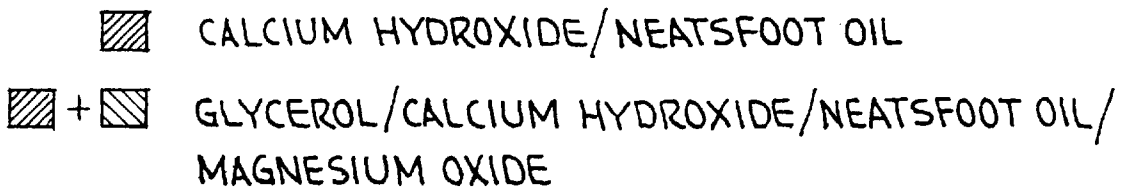 CALCIUM HYDROXIDE/NEATSFOOT OIL
+ GLYCEROL/CALCIUM HYDROXIDE/NEATSFOOT OIL/
MAGNESIUM OXIDE